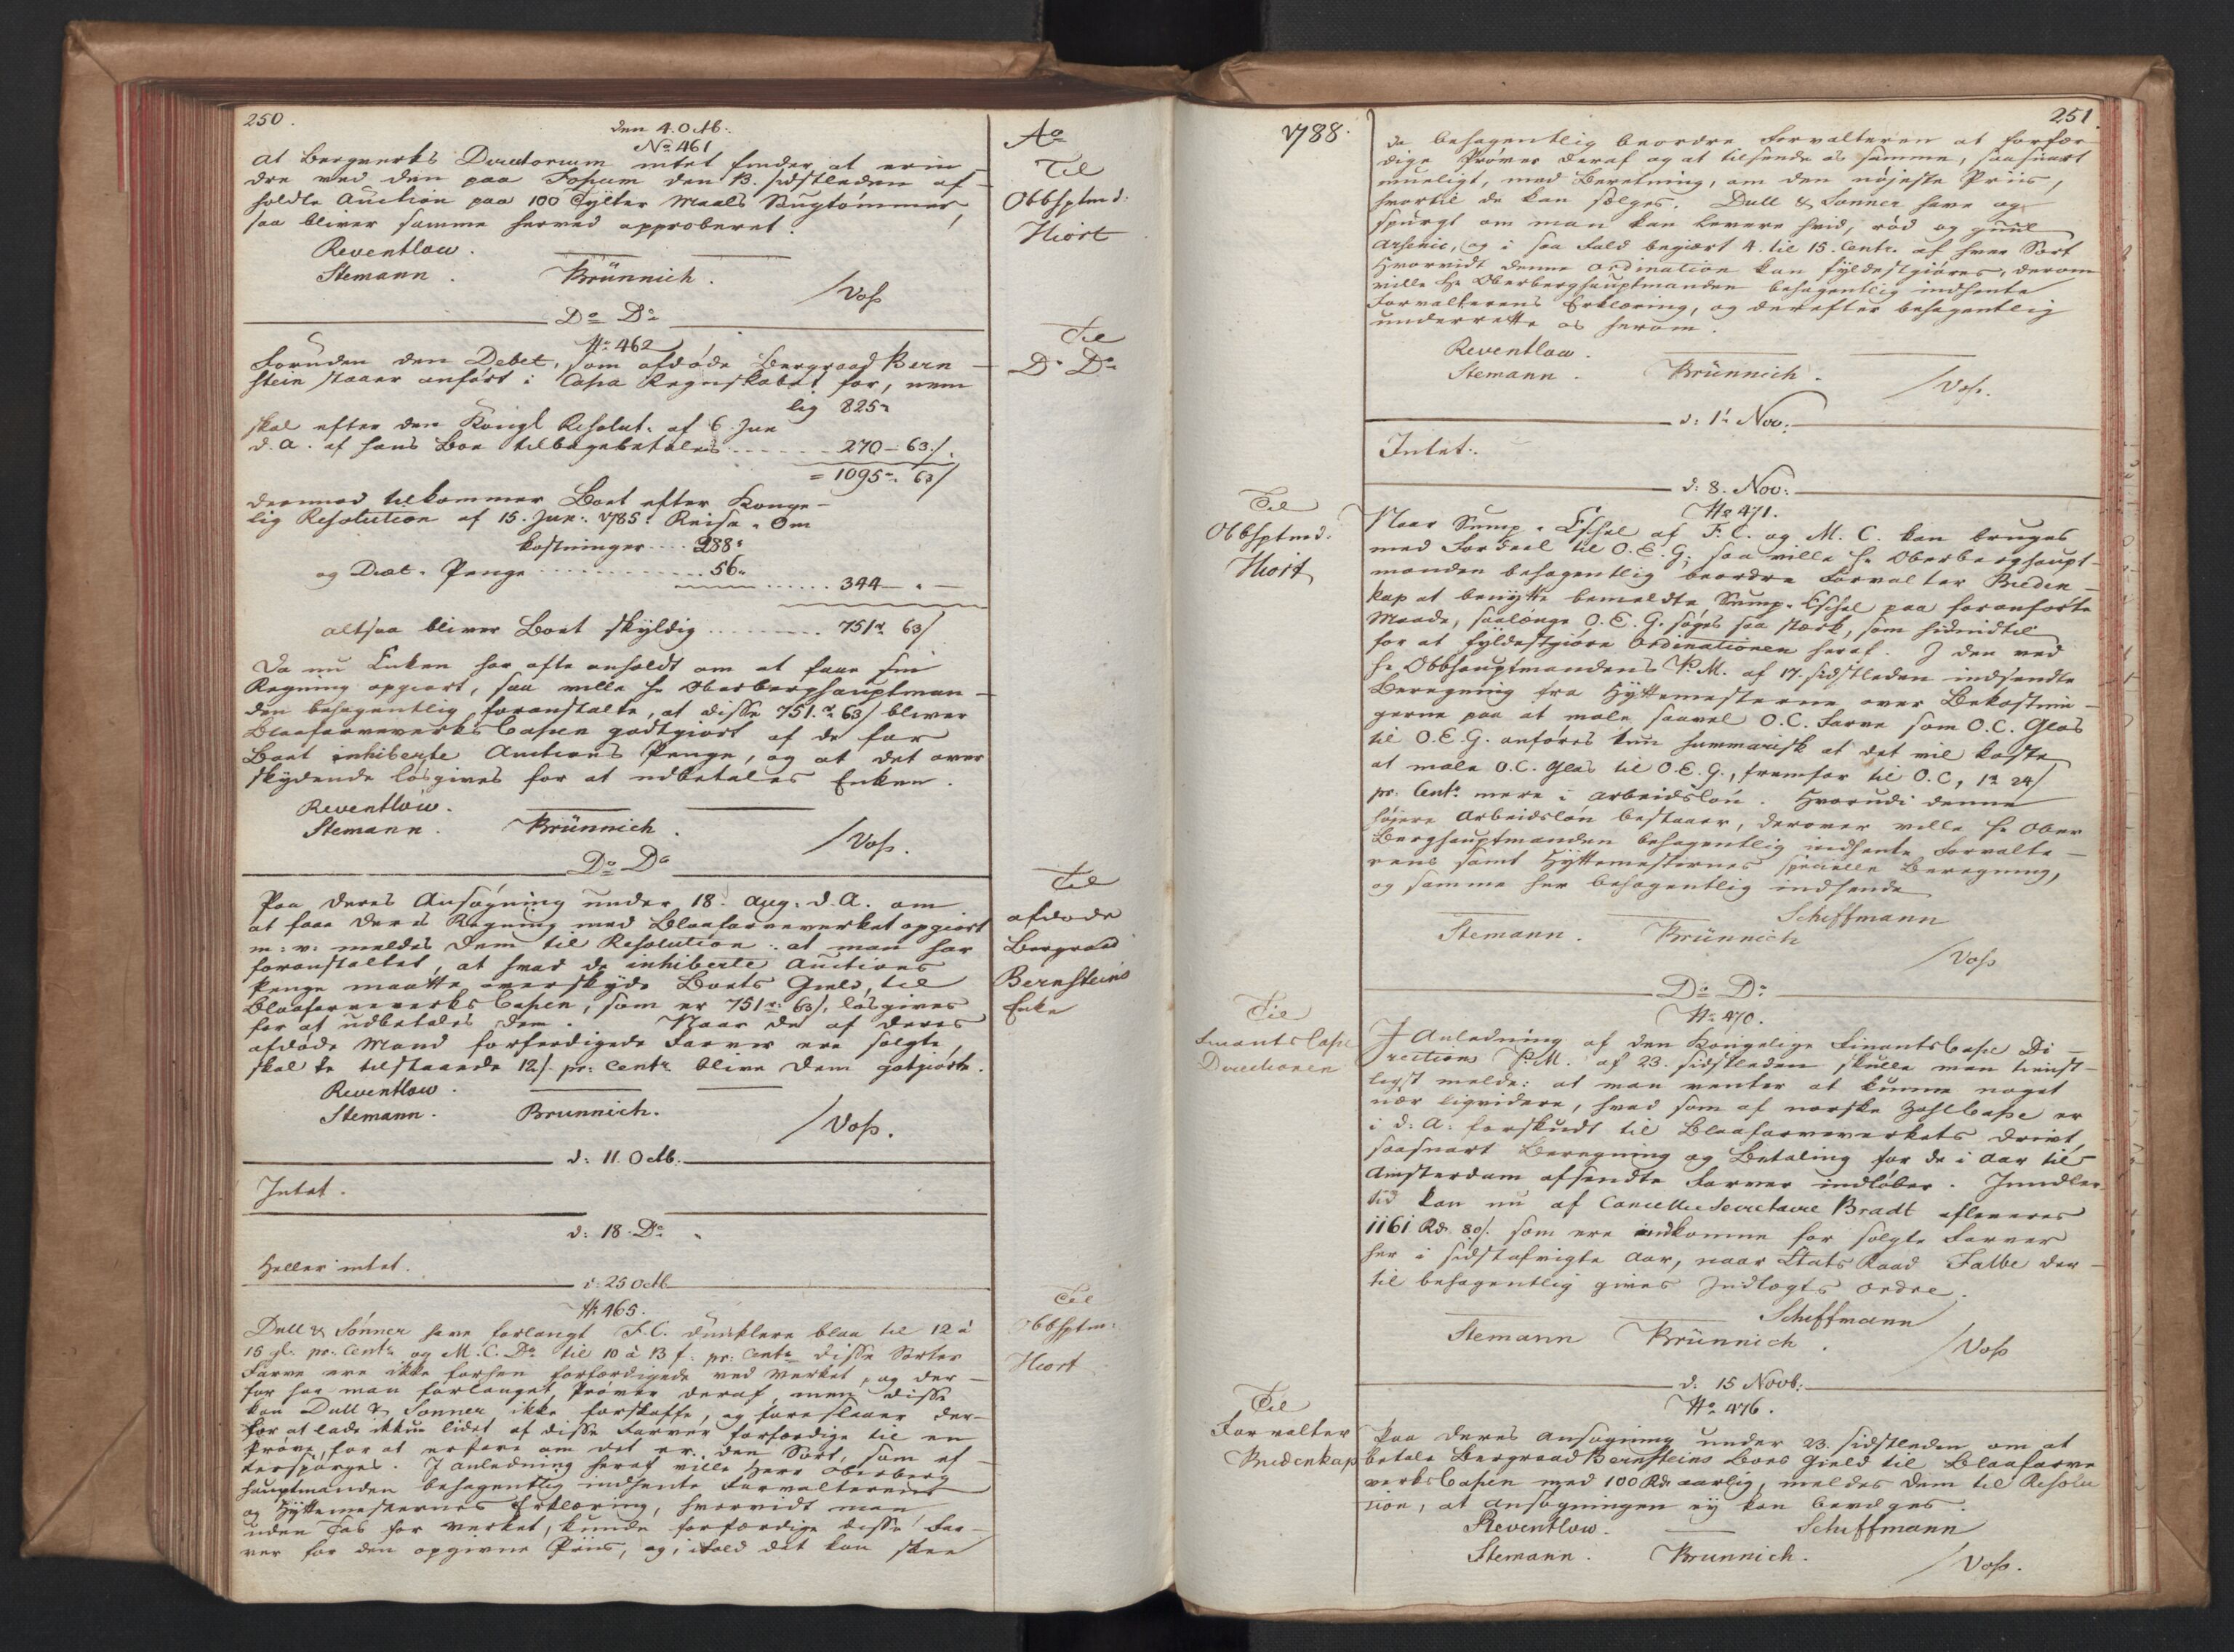 250.
den 4. Octb:.
No 461
Ao
Til
Obbhptmd:
Hiort
At Bergverks Directorium intet finder at erin-
dre ved den paa Fossum den 13. sidstleden af-
holdte Auction paa 100 Tylter Maals Bugtømmer,
saa bliver samme herved approberet.
Reventlow.
Stemann. Brünnich.
/Voss
Do Do
No 462
Til
Do Do
Foruden den Debet, som afdøde Bergraad Bern-
stein staaer anført i Cassa Regnskabet for, nem
lig 825
skal efter den Kongl Resolut. af 6. Jun
d. A. af hans Boe tilbagebetales ...... 270 - 63/.
= 1095. 63/
derimod tilkommer Boet efter Konge-
lig Resolution af 15. Jun: 1785. Reise-Om
kostninger .... 288
og Diæt-Penge ............ 56
...... 344
altsaa bliver Boet skyldig ......... 751 63/
Da nu Enken har ofte anholdt om at faae sin
Regning opgiort, saa ville Hr Oberberghauptman-
den behagentlig foranstalte, at disse 751. 63/ bliver
Blaafarveverks Cassen godtgiort af de for
Boet inhiberte Auctions Penge, og at det over
skydende løsgives for at udbetales Enken.
Reventlow.
Stemann. Brünnich.
/Voss.
Do Do
Til
afdøde
Bergraad
Bernsteins
Enke
Paa Deres Ansøgning under 18. Aug. d. A. om
at faae Deres Regning med Blaafarveverket opgiort
m: v: meldes Dem til Resolution: at man har
foranstaltet, at hvad de inhiberte Auctions
Penge maatte overskyde Boets Gield, til
Blaafarveverks Cassen, som er 751 63/. løsgives
for at udbetales Dem. Naar de af Deres
afdøde Mand forferdigede Farver ere solgte,
skal de tilstaaende 12/. pr: Centr blive Dem gotgiorte.
Reventlow.
Stemann. Brunnich.
/Voss.
d: 11. Octb:
Intet.
d: 18. Do
Heller intet.
d: 25 Octb
No 465.
Til
Obbhptm:
Hiort
Dull & Sønner have forlangt F.C. dunklere blaa til 12 à
15 gl. pr. Centr og M.C. Do til 10 à 13 f: pr: Centr disse Sorter
Farve ere ikke forhen forfærdigede ved Verket, og der-
for har man forlanget Prøver deraf, men disse
kan Dull & Sønner ikke forskaffe, og foreslaaer der-
for at lade ikkun lidet af disse Farver forfærdige til en
Prøve, for at erfare om det er den Sort, som ef-
terspørges. I Anledning heraf ville Herr Oberberg
hauptmanden behagentlig indhente Forvalterens
og Hyttemesternes Erklæring, hvorvidt man
uden Tab for Verket, kunde forfærdige disse Far-
ver for den opgivne Priis, og, ifald det kan skee
1788.
251
de behagentlig beordre Forvalteren at forfær-
dige Prøver deraf og at tilsende os samme, saasnart
mueligt, med Beretning, om den nøjeste Priis,
hvortil de kan sælges. Dull & Sønner have og
spurgt om man kan levere hvid, rød og guul
Arsenic, og i saa Fald begiert 4. til 15. Centr. af hver Sort
Hvorvidt denne Ordination kan fyldestgiøres, derom
ville Hr Oberberghauptmanden behagentlig indhente
Forvalterens Erklæring, og derefter behagentlig
underrette os herom.
Reventlow.
Stemann. Brünnich.
/Voss.
d: 1. Nov:
Intet.
d: 8. Nov:
No 471.
Til
Obbhptmd:
Hiort
Naar Sump-Eschel af F.C. og M.C. kan bruges
med Fordeel til O.E.G., saa ville Hr Oberberghaupt-
manden behagentlig beordre Forvalter Breden-
kap at benytte bemeldte Sump-Eschel paa foranførte
Maade, saalænge O.E.G. søges saa stærk, som hidindtil
for at fyldestgiøre Ordinationen heraf. I den ved
Hr Obbhauptmandens P.M. af 17. sidstleden indsendte
Beregning fra Hyttemesterne over Bekostnin-
gerne paa at male saavel O.C. Farve som O.C. Glas
til O.E.G. anføres kun summarisk at det vil koste
at male O.C. Glas til O.E.G., fremfor til O.C, 1 24/
pr: Centr mere i Arbeidsløn. Hvorudi denne
høiere Arbeidsløn bestaaer, derover ville Hr Ober
Berghauptmanden behagentlig indhente Forvalte-
rens samt Hyttemesternes specielle Beregning,
og samme her behagentlig indsende
Schiffmann
Stemann. Brünnich
/Voss
Do Do
No 470.
Til
Finants Casse
Directionen
I Anledning af den Kongelige Finants Casse Di-
rections P.M. af 23. sidstleden skulle man tienst-
ligst melde: at man venter at kunne noget
nær liqvidere, hvad som af norske Zahl Casse er
i d: A: forskudt til Blaafarveverkets Drivt,
saasnart Beregning og Betaling for de i Aar til
Amsterdam afsendte Farver indløber. Imidler-
tid kan nu af Cancellie Secretaire Bradt afleveres
1161 Rd 80/. som ere indkomne for solgte Farver
her i sidstafvigte Aar, naar Etats Raad Falbe der-
til behagentlig gives Indtægts Ordre.
Schiffmann
Stemann Brünnich.
/Voss
d: 15 Novb:
No 476.
Til
Forvalter
Bredenkap
Paa Deres Ansøgning under 23. sidstleden om at
betale Bergraad Bernsteins Boes Gield til Blaafarve
verks Cassen med 100 Rd aarlig, meldes Dem til Resolu
tion, at Ansøgningen ey kan bevilges.
Reventlow. Schiffmann
Stemann. Brunnich.
/Voss.